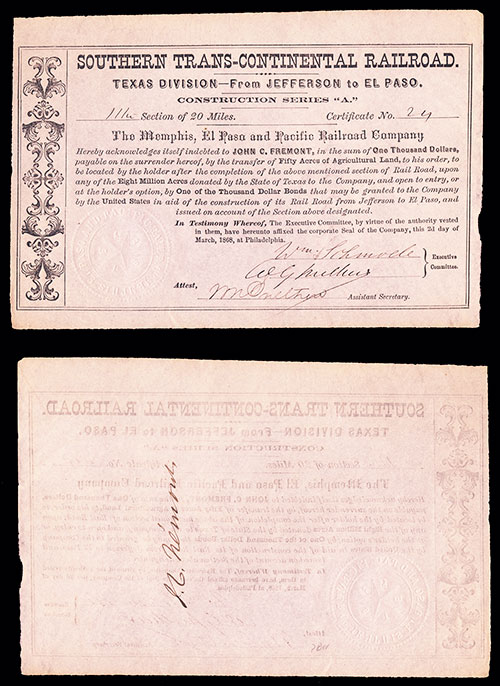 SOUTHERN TRANS-CONTINENTAL RAILROAD.
TEXAS DIVISION—From JEFFERSON to EL PASO.
CONSTRUCTION SERIES "A."
11th Section of 20 Miles. Certificate No. 24
The Memphis, El Paso and Pacific Railroad Company
Hereby acknowledges itself indebted to JOHN C. FREMONT, in the sum of One Thousand Dollars,
payable on the surrender hereof, by the transfer of Fifty Acres of Agricultural Land, to his order, to
be located by the holder after the completion of the above mentioned section of Rail Road, upon
any of the Eight Million Acres donated by the State of Texas to the Company, and open to entry, or
at the holder's option, by One of the Thousand Dollar Bonds that may be granted to the Company
by the United States in aid of the construction of its Rail Road from Jefferson to El Paso, and
issued on account of the Section above designated.
In Testimony Whereof, The Executive Committee, by virtue of the authority vested
in them, have hereunto affixed the corporate Seal of the Company, this 2d day of
March, 1868, at Philadelphia.
Wm. Schmoele
Executive
Committee.
Attest,
Assistant Secretary.
SOUTHERN TRANS-CONTINENTAL RAILROAD.
TEXAS DIVISION—From JEFFERSON to EL PASO.
CONSTRUCTION SERIES "A."
The Memphis, El Paso and Pacific Railroad Company
J. C. Frémont